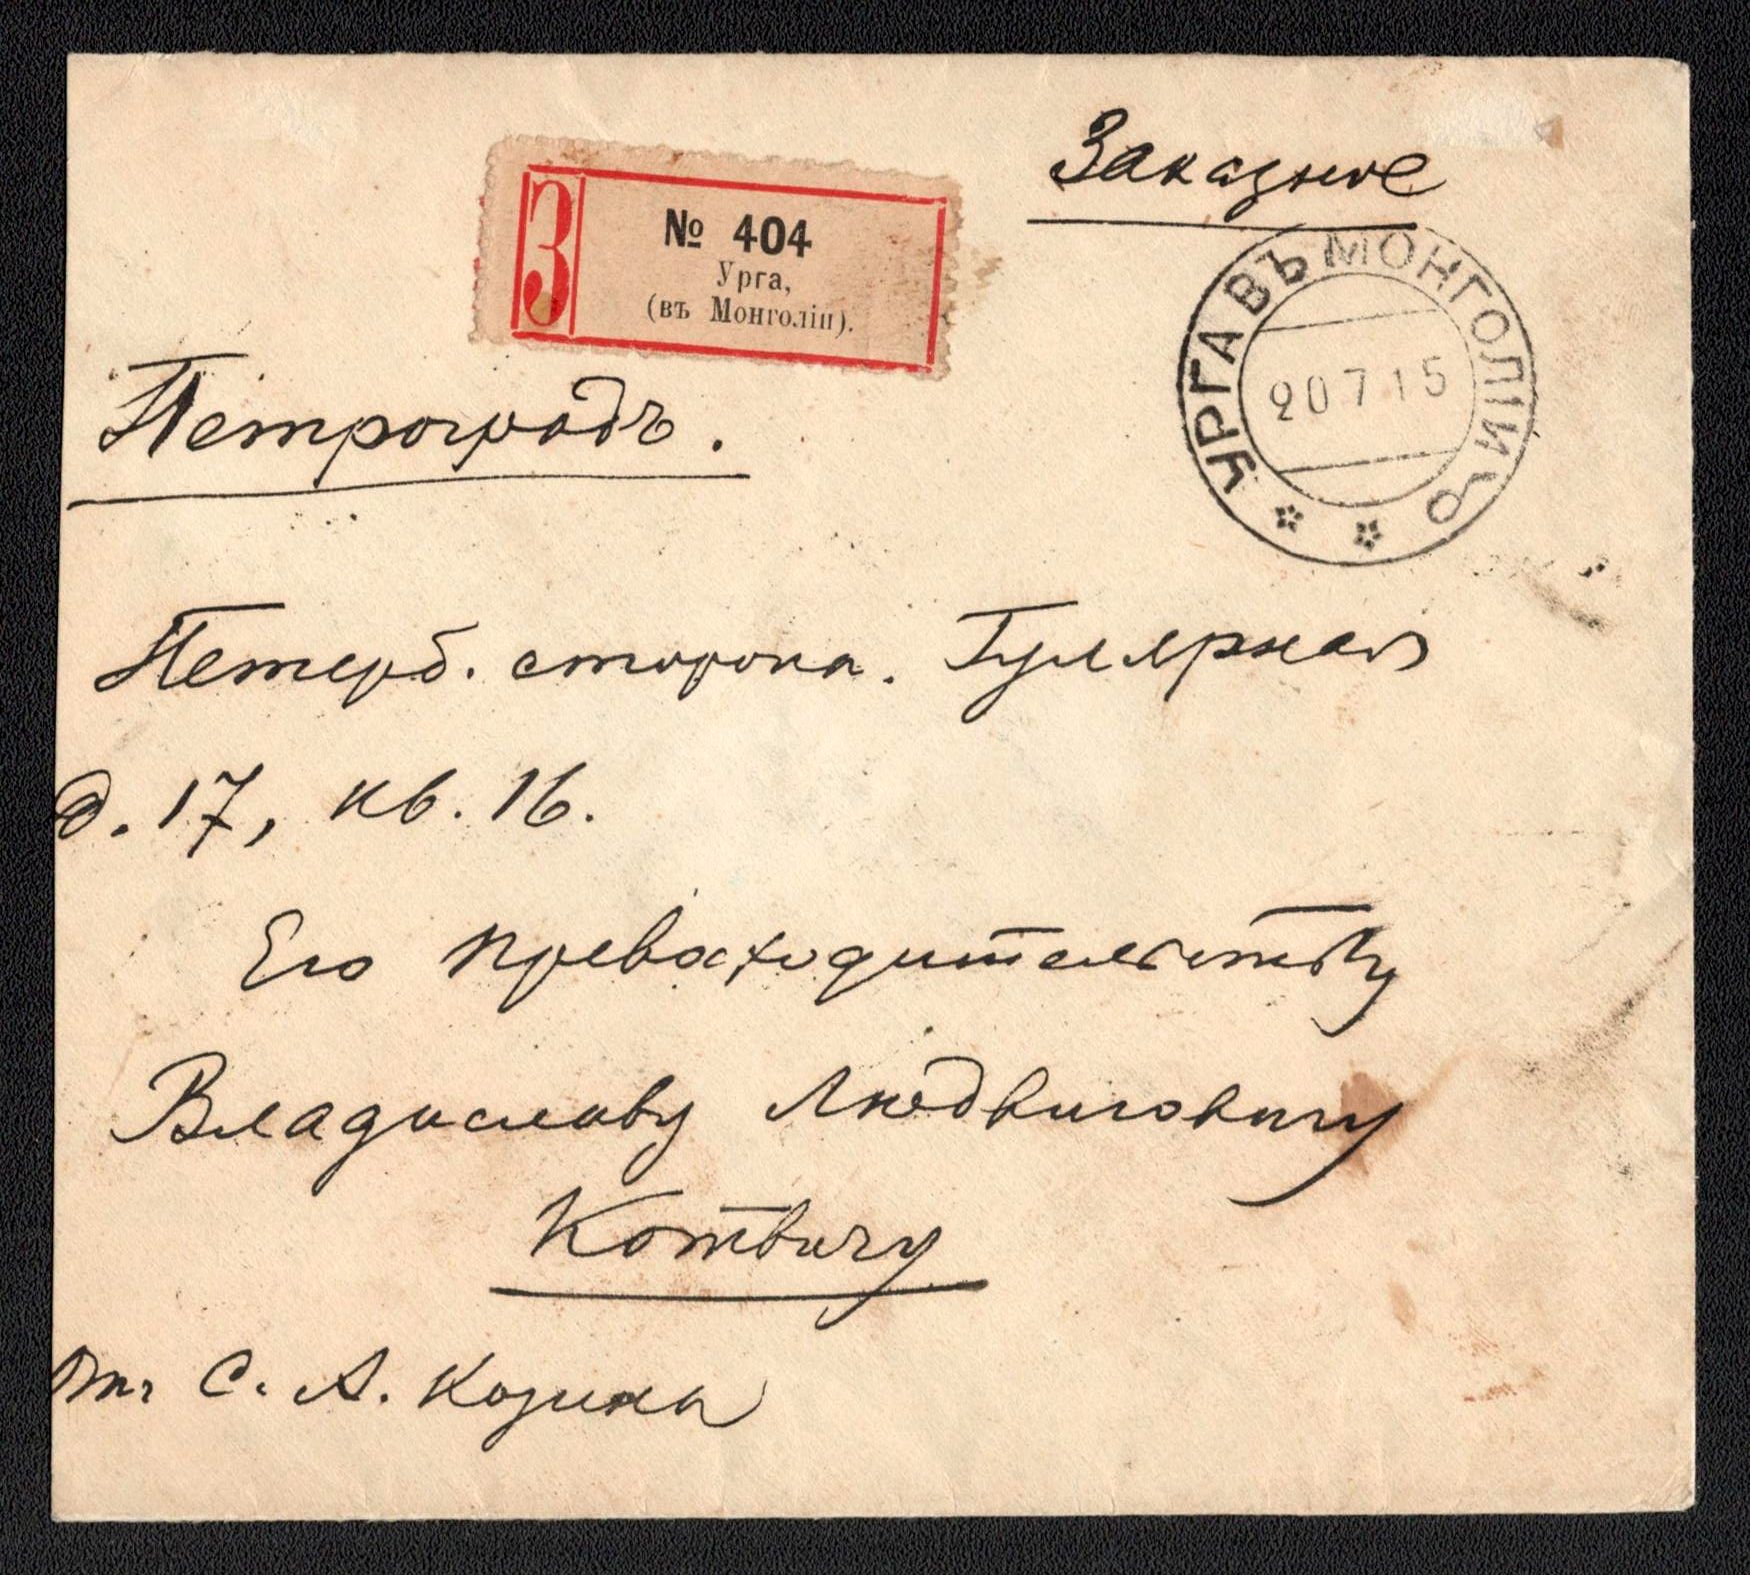 Заказное
З
№ 404
Урга,
(въ Монголіи).
УРГА ВЪ МОНГОЛІИ
20 7 15
Петроградъ.
Петерб. сторона. Гулярная
д. 17, кв. 16.
Его Превосходительству
Владиславу Людвиговичу
Котвичу
От С. А. Козина